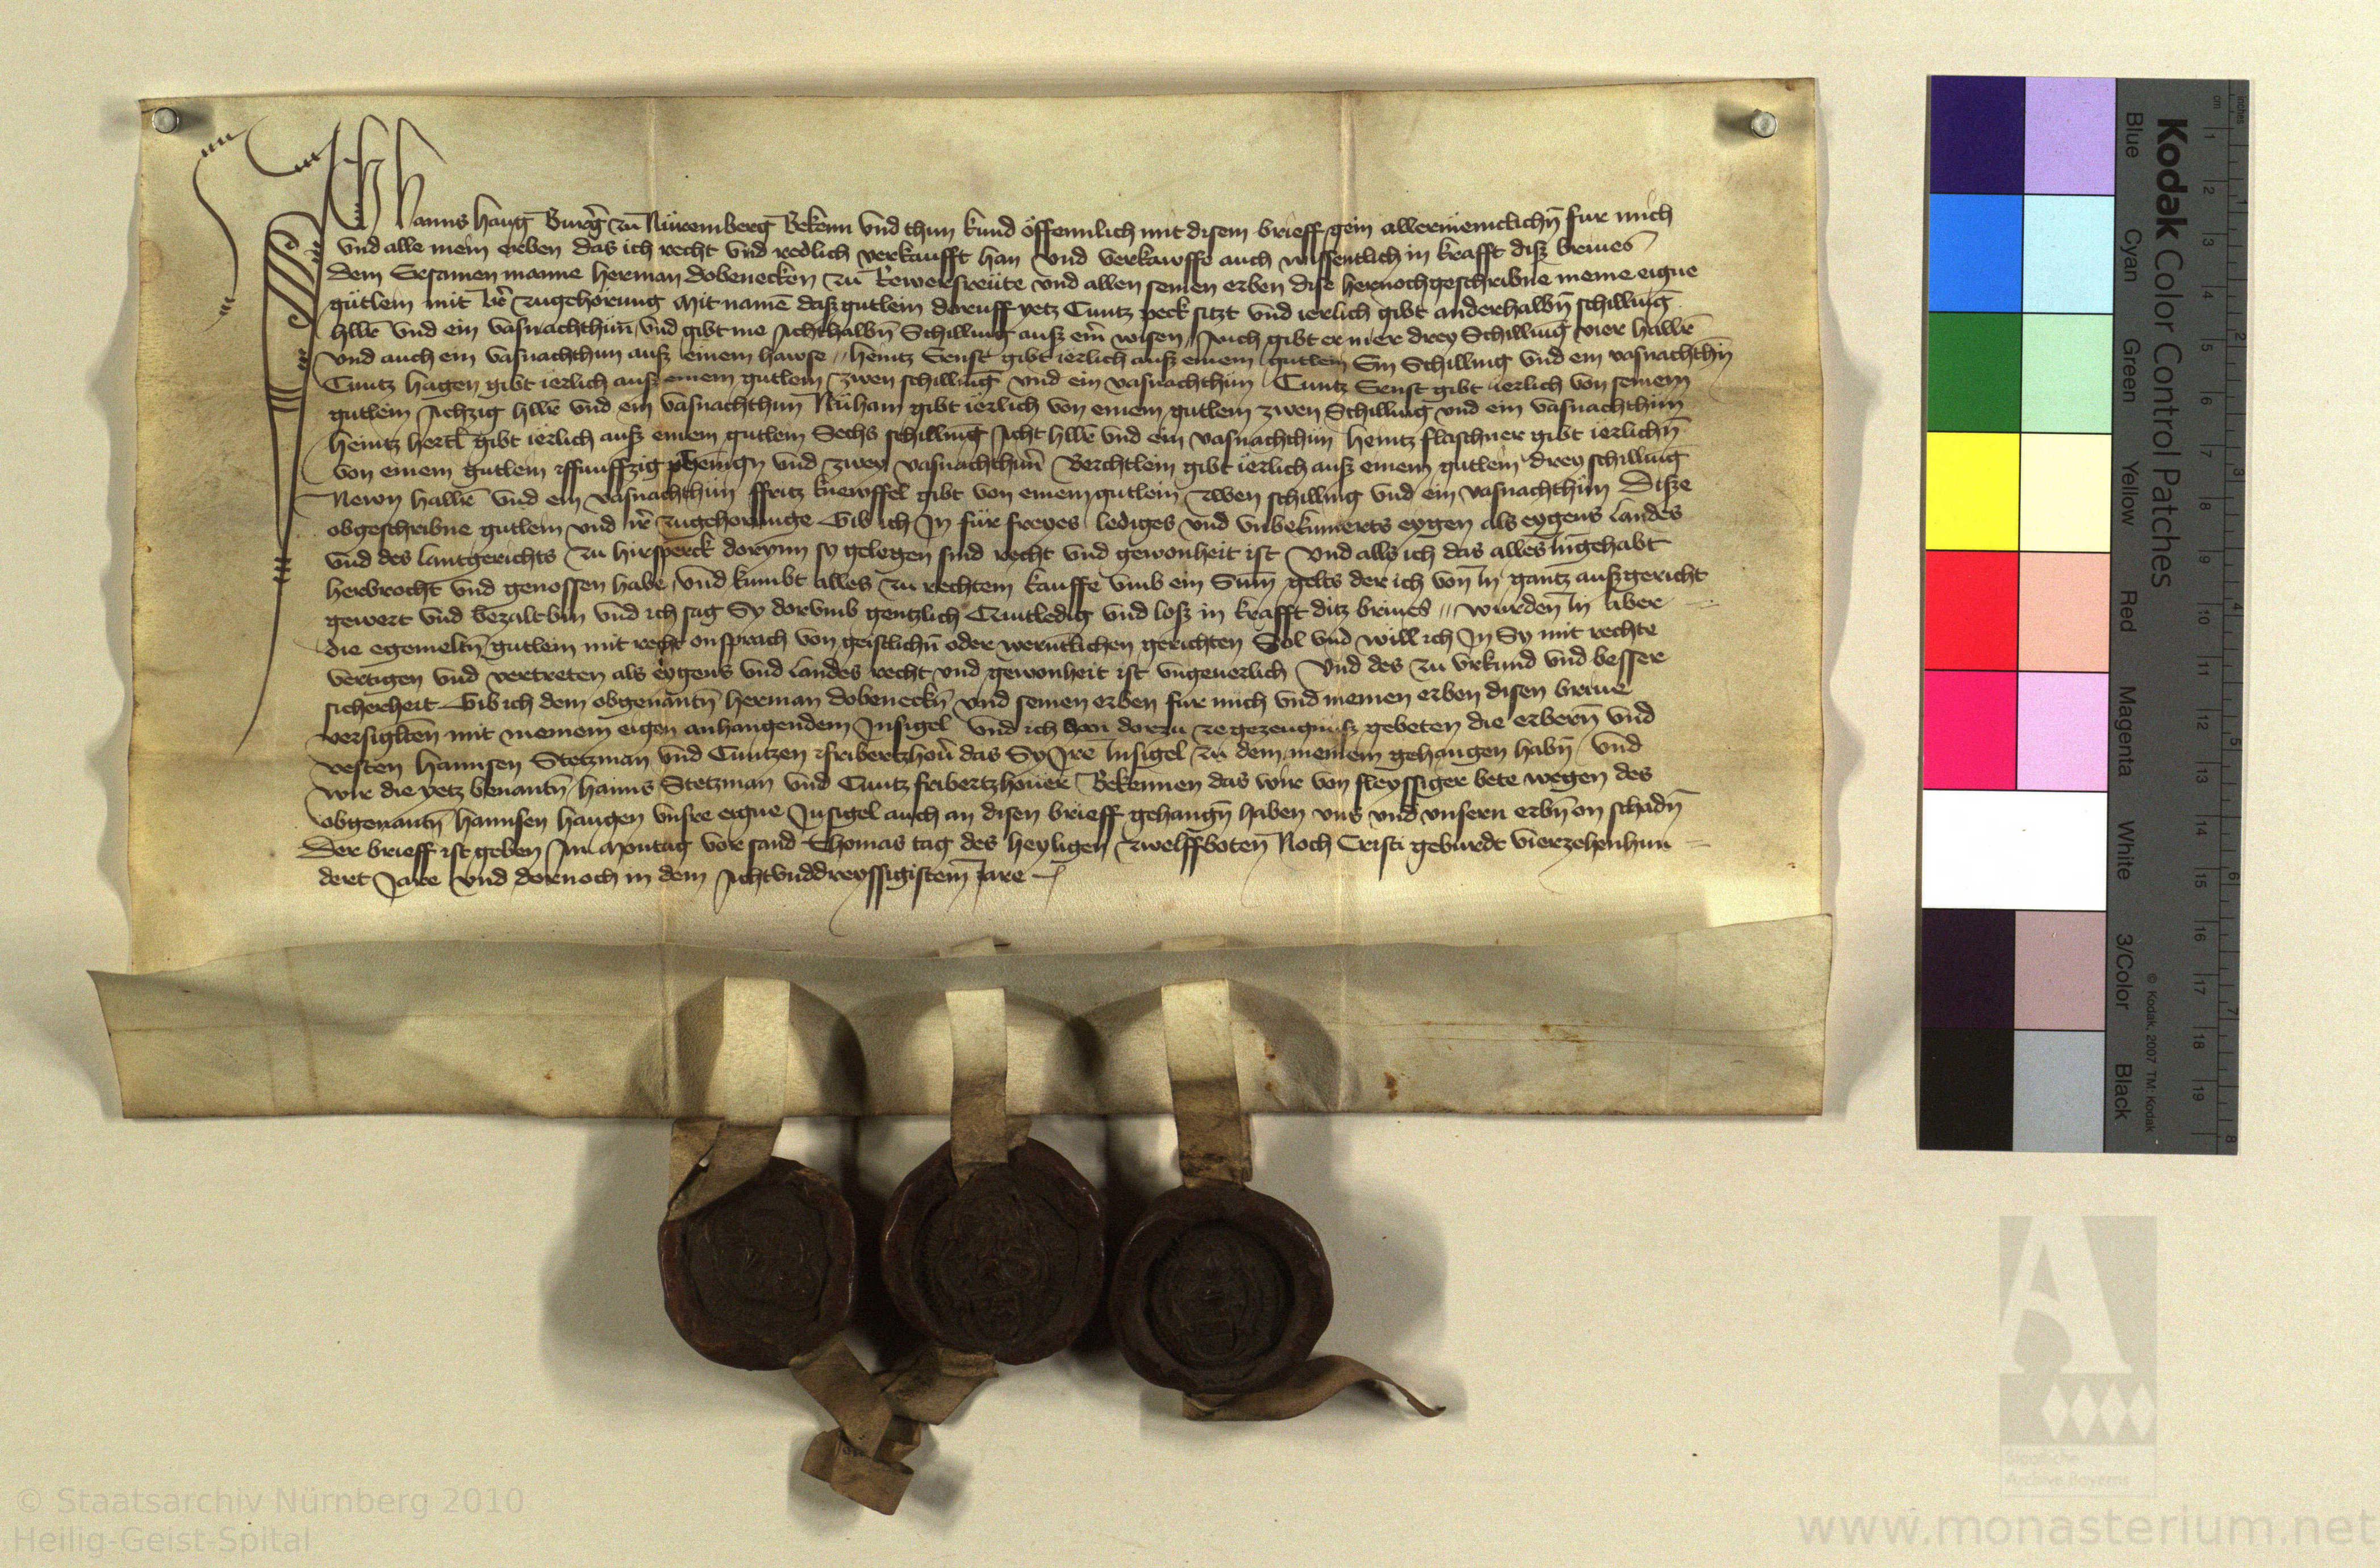 Ich Hanns Haug Burg̃ zu Nüremberg Bekenn vnd thun kund offennlich mit disem brieff gein allermenicklichn̄ fur mich
vnd alle mein erben das ich recht vnd redlich verkaufft han vnd verkawffe auch wissentlich in krafft disz briues
dem Ersamen manne Herman Dobenecken zu Kewersreüte vnd allen seinen erben dise hernochgeschribne meine eigne
gütlein mit ir̃ zugehorung Mit namē dasz gutlein doruff yetz Cuntz peck sitzt vnd ierlich gibt anderhalbn̄ schilling
hllr̄ vnd ein vasnachthun vnd gibt me Achthalbn̄ Schilling ausz ein̄ wisen Auch gibt er mer drey Schilling vier hallr̄
vnd auch ein vasnachthun ausz einem hawse // Heintz Senst gibt ierlich ausz einem gutlein Ein Schilling vnd ein vasnachthūn
Cuntz Hagen gibt ierlich ausz einem gutlein zwen schilling vnd ein vasnachthun Cuntz Senst gibt ierlich von seinem
gutlein Achzig hllr̄ vnd ein vasnachthun Nüham gibt ierlich von einem gutlein zwen Schilling vnd ein vasnachthun
Heintz Hertl gibt ierlich ausz einem gutlein Sechs schilling Acht hllr̄ vnd ein vasnachthun Heintz flaschner gibt ierlichn̄
von einem gutlein ffunffzig phenign vnd zwey vasnachthun̄ Berchtlein gibt ierlich ausz einem gutlein drey schilling
Newn hallr̄ vnd ein vasnachthun ffritz knewffel gibt von einem gutlein zwen schilling vnd ein vasnachthun Disze
obgeschribne gutlein vnd ir̃ zugehorunge Gib ich In für freyes lediges vnd vnbekumerts eygen als eygens Landes
vnd des Lantgerichts zu Hirsperck dorynn sy gelegen sind recht vnd gewonheit ist Vnd alls ich das alles Inngehabt
herbrocht vnd genossen habe vnd kumbt alles zu rechtem kauffe vmb ein Sum̄ gelts der ich von In gantz auszgericht
gewert vnd bezalt bin vnd ich sag Sy dorvmb gentzlich Quitledig vnd losz in krafft ditz briues // wurden In aber
die egemeltn̄ gutlein mit recht onsprach von geistlichn̄ oder werntlichen gerichten Sol vnd will ich In Sy mit rechte
vertigen vnd vertreten als eygens vnd Landes recht vnd gewonheit ist vngeuerlich Vnd des zu vrkund vnd besser
sicherheit Gib ich dem obgenantn̄ Herman Dobeneckn̄ vnd seinen erben fur mich vnd meinen erben disen briue
versigltē mit meinem eigen anhangendem Insigel Vnd ich hon dorzu ze gezeugnusz gebeten die erbern̄ vnd
vesten Hannsen Stetzman vnd Cuntzen ffribertzhou͂ das Sy Ire Insigel zu dem meinem gehangen habn̄ Vnd
wir die yetz benantn̄ Hanns Stetzman vnd Cuntz fribertzhouer Bekennen das wir von fleyssiger bete wegen des
obgenantn̄ Hannsen Haugen vnsre eigne Insigel auch an disen brieff gehangn̄ haben vns vnd vnsern erbn̄ on schadn̄
Der brieff ist geben Am Montag vor sand Thomas tag des heyligen zwelffboten Noch Cristi geburdt vierzehenhun
dert Jare vnd dornoch in dem Achtunddreyssigistem Jare
Kodak Color Control Patches
Blue Cyan Green Yellow Red Magenta White 3/Color Black
© Kodak, 2007 TM: Kodak
inches 1 2 3 4 5 6 7 8
cm 1 2 3 4 5 6 7 8 9 10 11 12 13 14 15 16 17 18 19
Staatliche
Archive Bayerns
© Staatsarchiv Nürnberg 2010
Heilig-Geist-Spital
www.monasterium.net